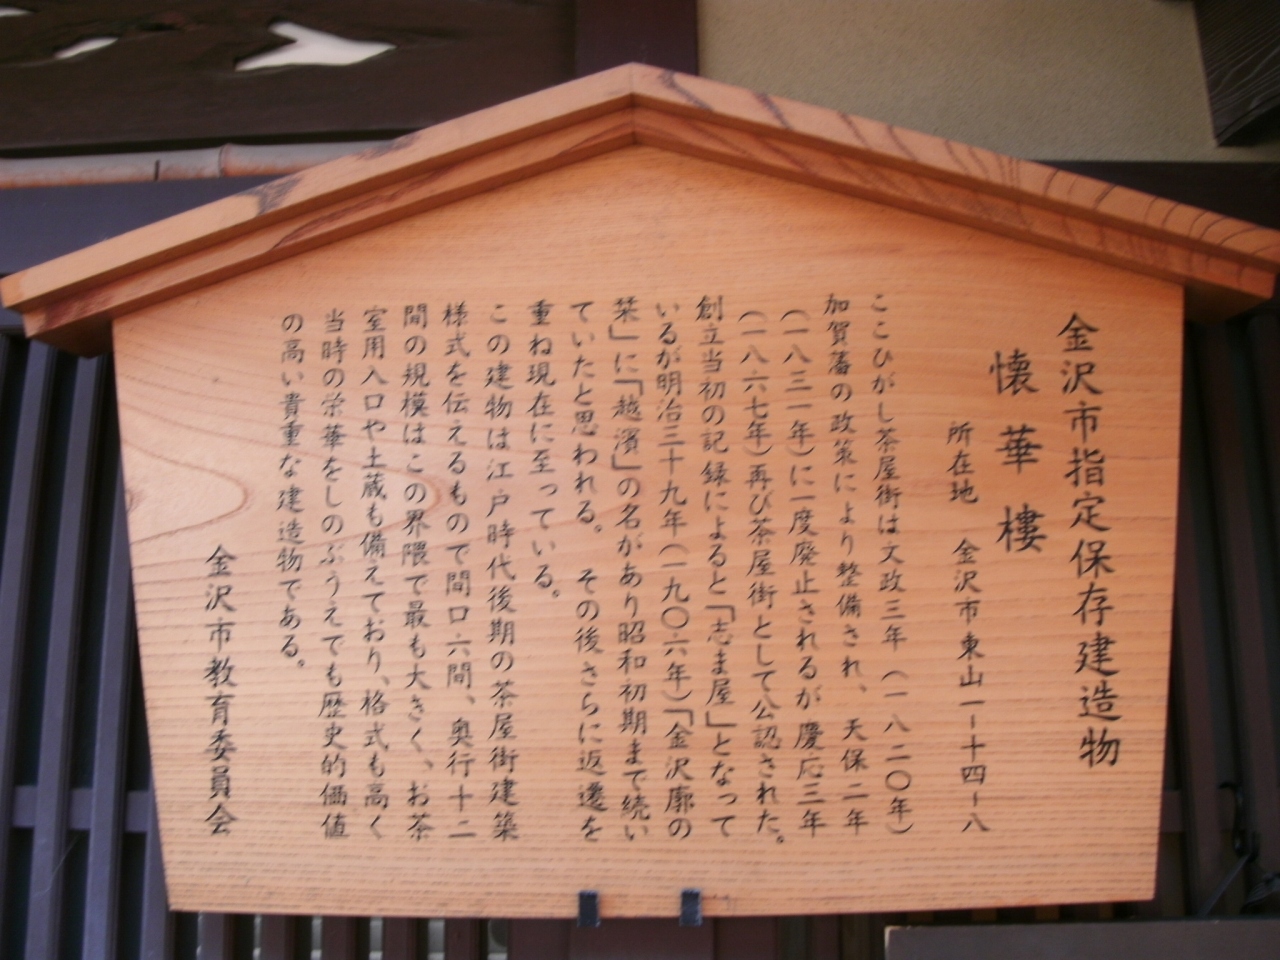 金沢市指定保存建造物
懐華樓
所在地 金沢市東山一ー十四ー八
ここひがし茶屋街は文政三年(一八二〇年)
加賀藩の政策により整備され、天保二年
(一八三一年)に一度廃止されるが慶応三年
(一八六七年)再び茶屋街として公認された。
創立当初の記録によると「志ま屋」となって
いるが明治三十九年(一九〇六年)「金沢廓の
栞」に「越濱」の名があり昭和初期まで続い
ていたと思われる。 その後さらに返遷を
重ね現在に至っている。
この建物は江戸時代後期の茶屋街建築
様式を伝えるもので間口六間、奥行十二
間の規模はこの界隈で最も大きく、お茶
室用入口や土蔵も備えており、格式も高く
当時の栄華をしのぶうえでも歴史的価値
の高い貴重な建造物である。
金沢市教育委員会